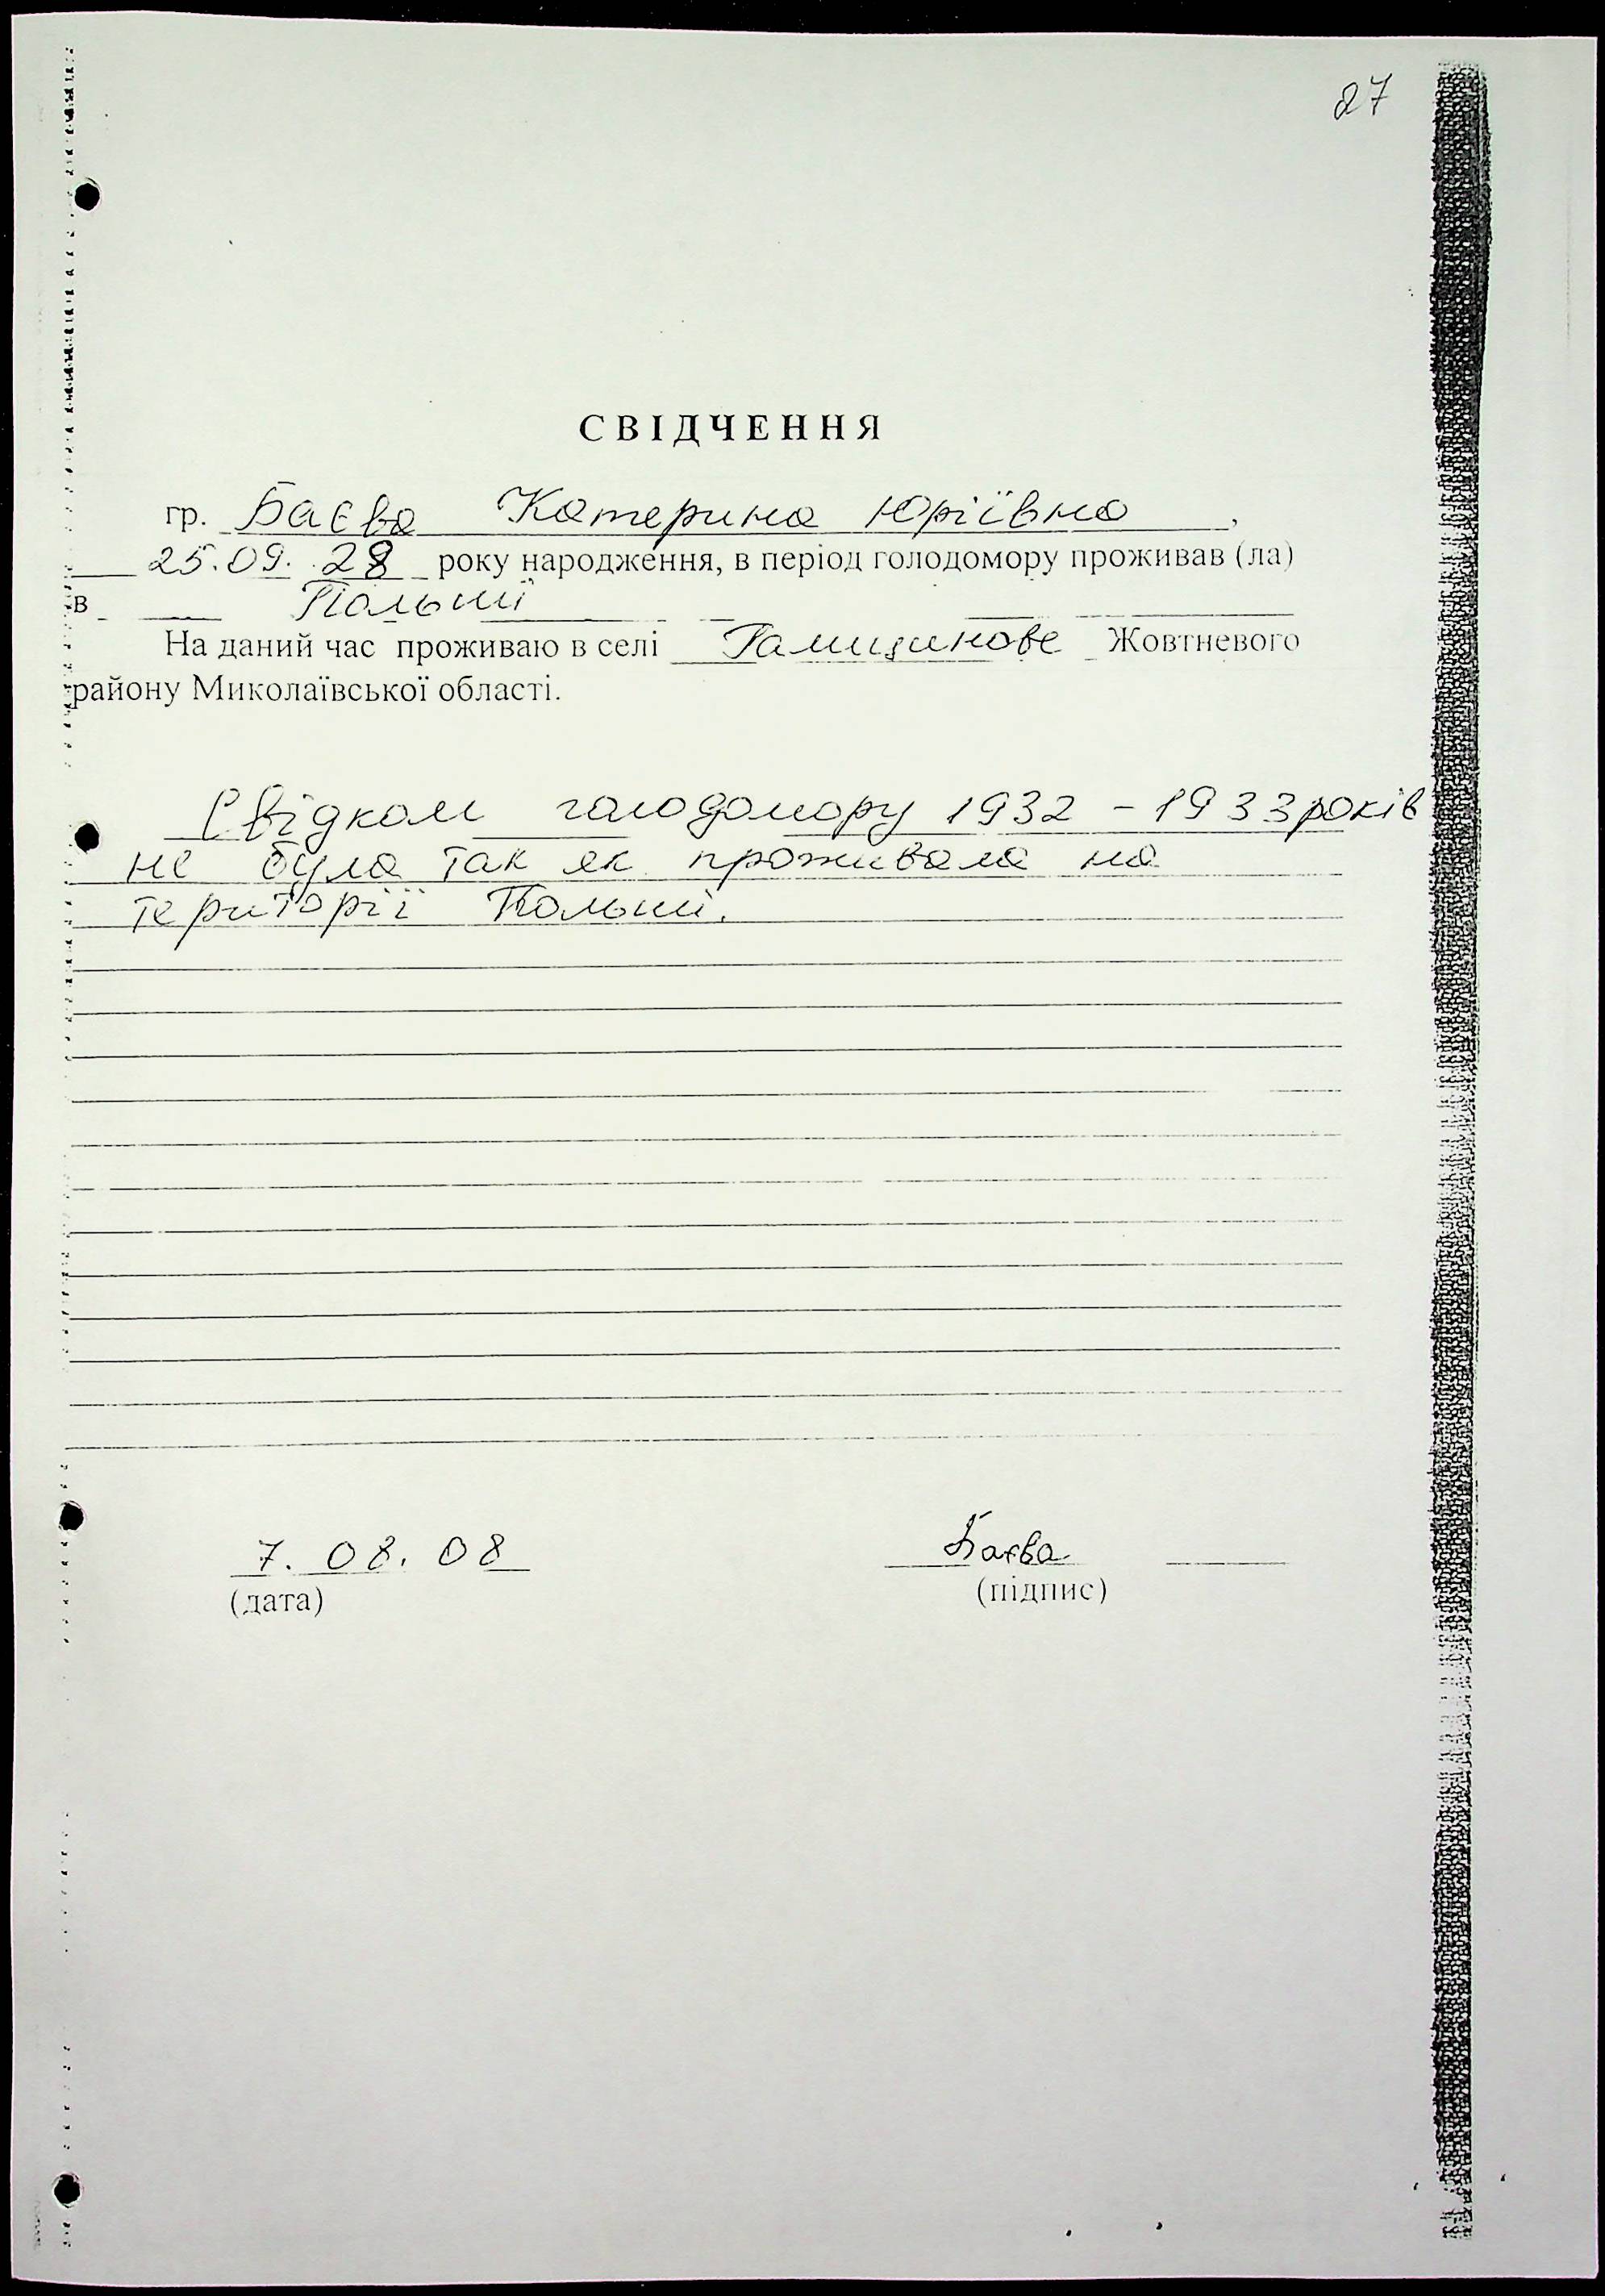 27
СВІДЧЕННЯ
гр. Баєва Катерина Юріївна,
25.09.28 року народження, в період голодомору проживав (ла)
в Польші
На даний час проживаю в селі Галицинове Жовтневого
району Миколаївської області.
Свідком голодомору 1932 - 1933 років
не була так як проживала на
території Польші.
7. 08. 08 Баєва
(дата) (підпис)